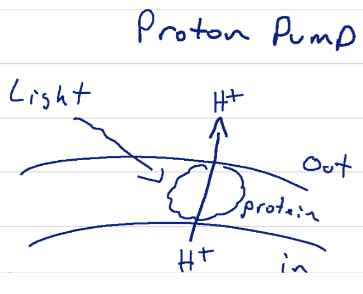 Proton Pump
Light
H+
Out
protein
H+
in